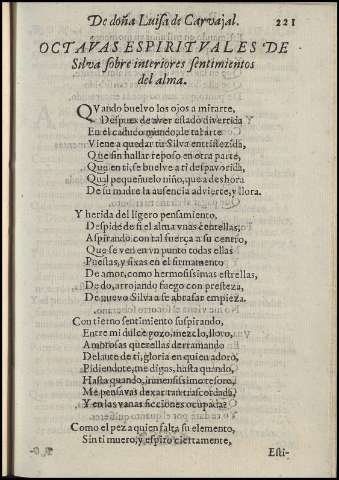 De doña Luisa de Carvajal. 221
OCTAVAS ESPIRITVALES DE
Silva sobre interiores sentimientos
del alma.
QVando buelvo los ojos a mirarte,
Despues de aver estado divertida
En el caduco mundo, de tal arte
Viene a quedar tu Silva entristezida,
Que sin hallar reposo en otra parte,
Que en ti, se buelve a ti despavorida,
Qual pequeñuelo niño, que a deshora
De su madre la ausencia advierte, y llora.
Y herida del ligero pensamiento,
Despide de si el alma vnas centellas,
Aspirando con tal fuerça a su centro,
Que se ven en vn punto todas ellas
Puestas, y fixas en el firmamento
De amor, como hermosissimas estrellas,
De do, arrojando fuego con presteza,
De nuevo Silva a se abrasar empieza.
Con tierno sentimiento suspirando,
Entre mi dulce gozo, mezclo, lloro,
Ambrosas querellas derramando
Delante de ti, gloria en quien adoro,
Pidiendote, me digas, hasta quando,
Hasta quando, inmensissimo tesoro,
Me pensavas dexar tan trascordada,
Y en las vanas ficciones ocupada?
Como el pez a quien falta su elemento,
Sin ti muero, y espiro ciertamente,
Esti-